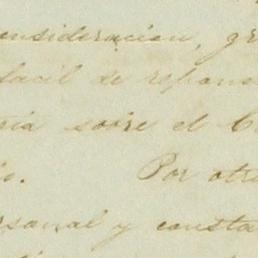 consideracion, gr
facil de
ria sobre el C
Por otr
rsonal y consta